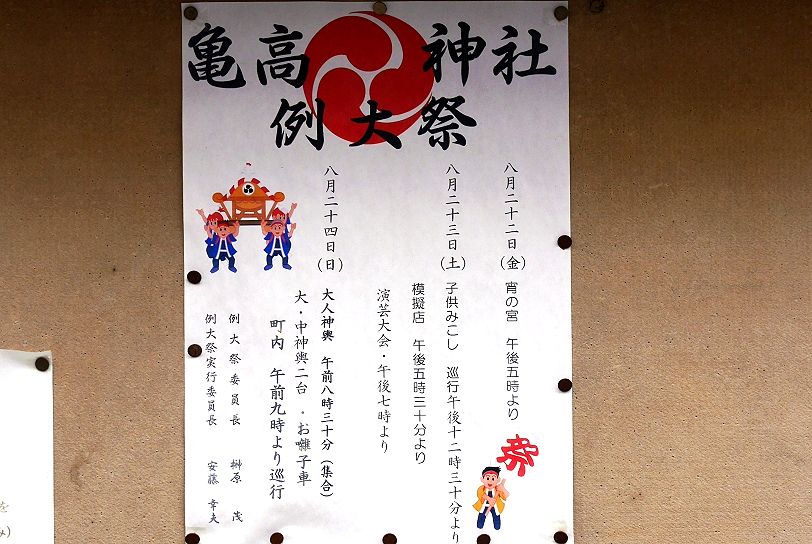 亀高神社
例大祭
八月二十二日（金）　宵の宮　午後五時より
八月二十三日（土）　子供みこし　巡行午後十二時三十分より
模擬店　午後五時三十分より
演芸大会・午後七時より
八月二十四日（日）　大人神輿　午前八時三十分（集合）
大・中神輿二台　・お囃子車
町内　午前九時より巡行
例大祭委員長　榊原　茂
例大祭実行委員長　安藤　幸夫
祭
を
み）